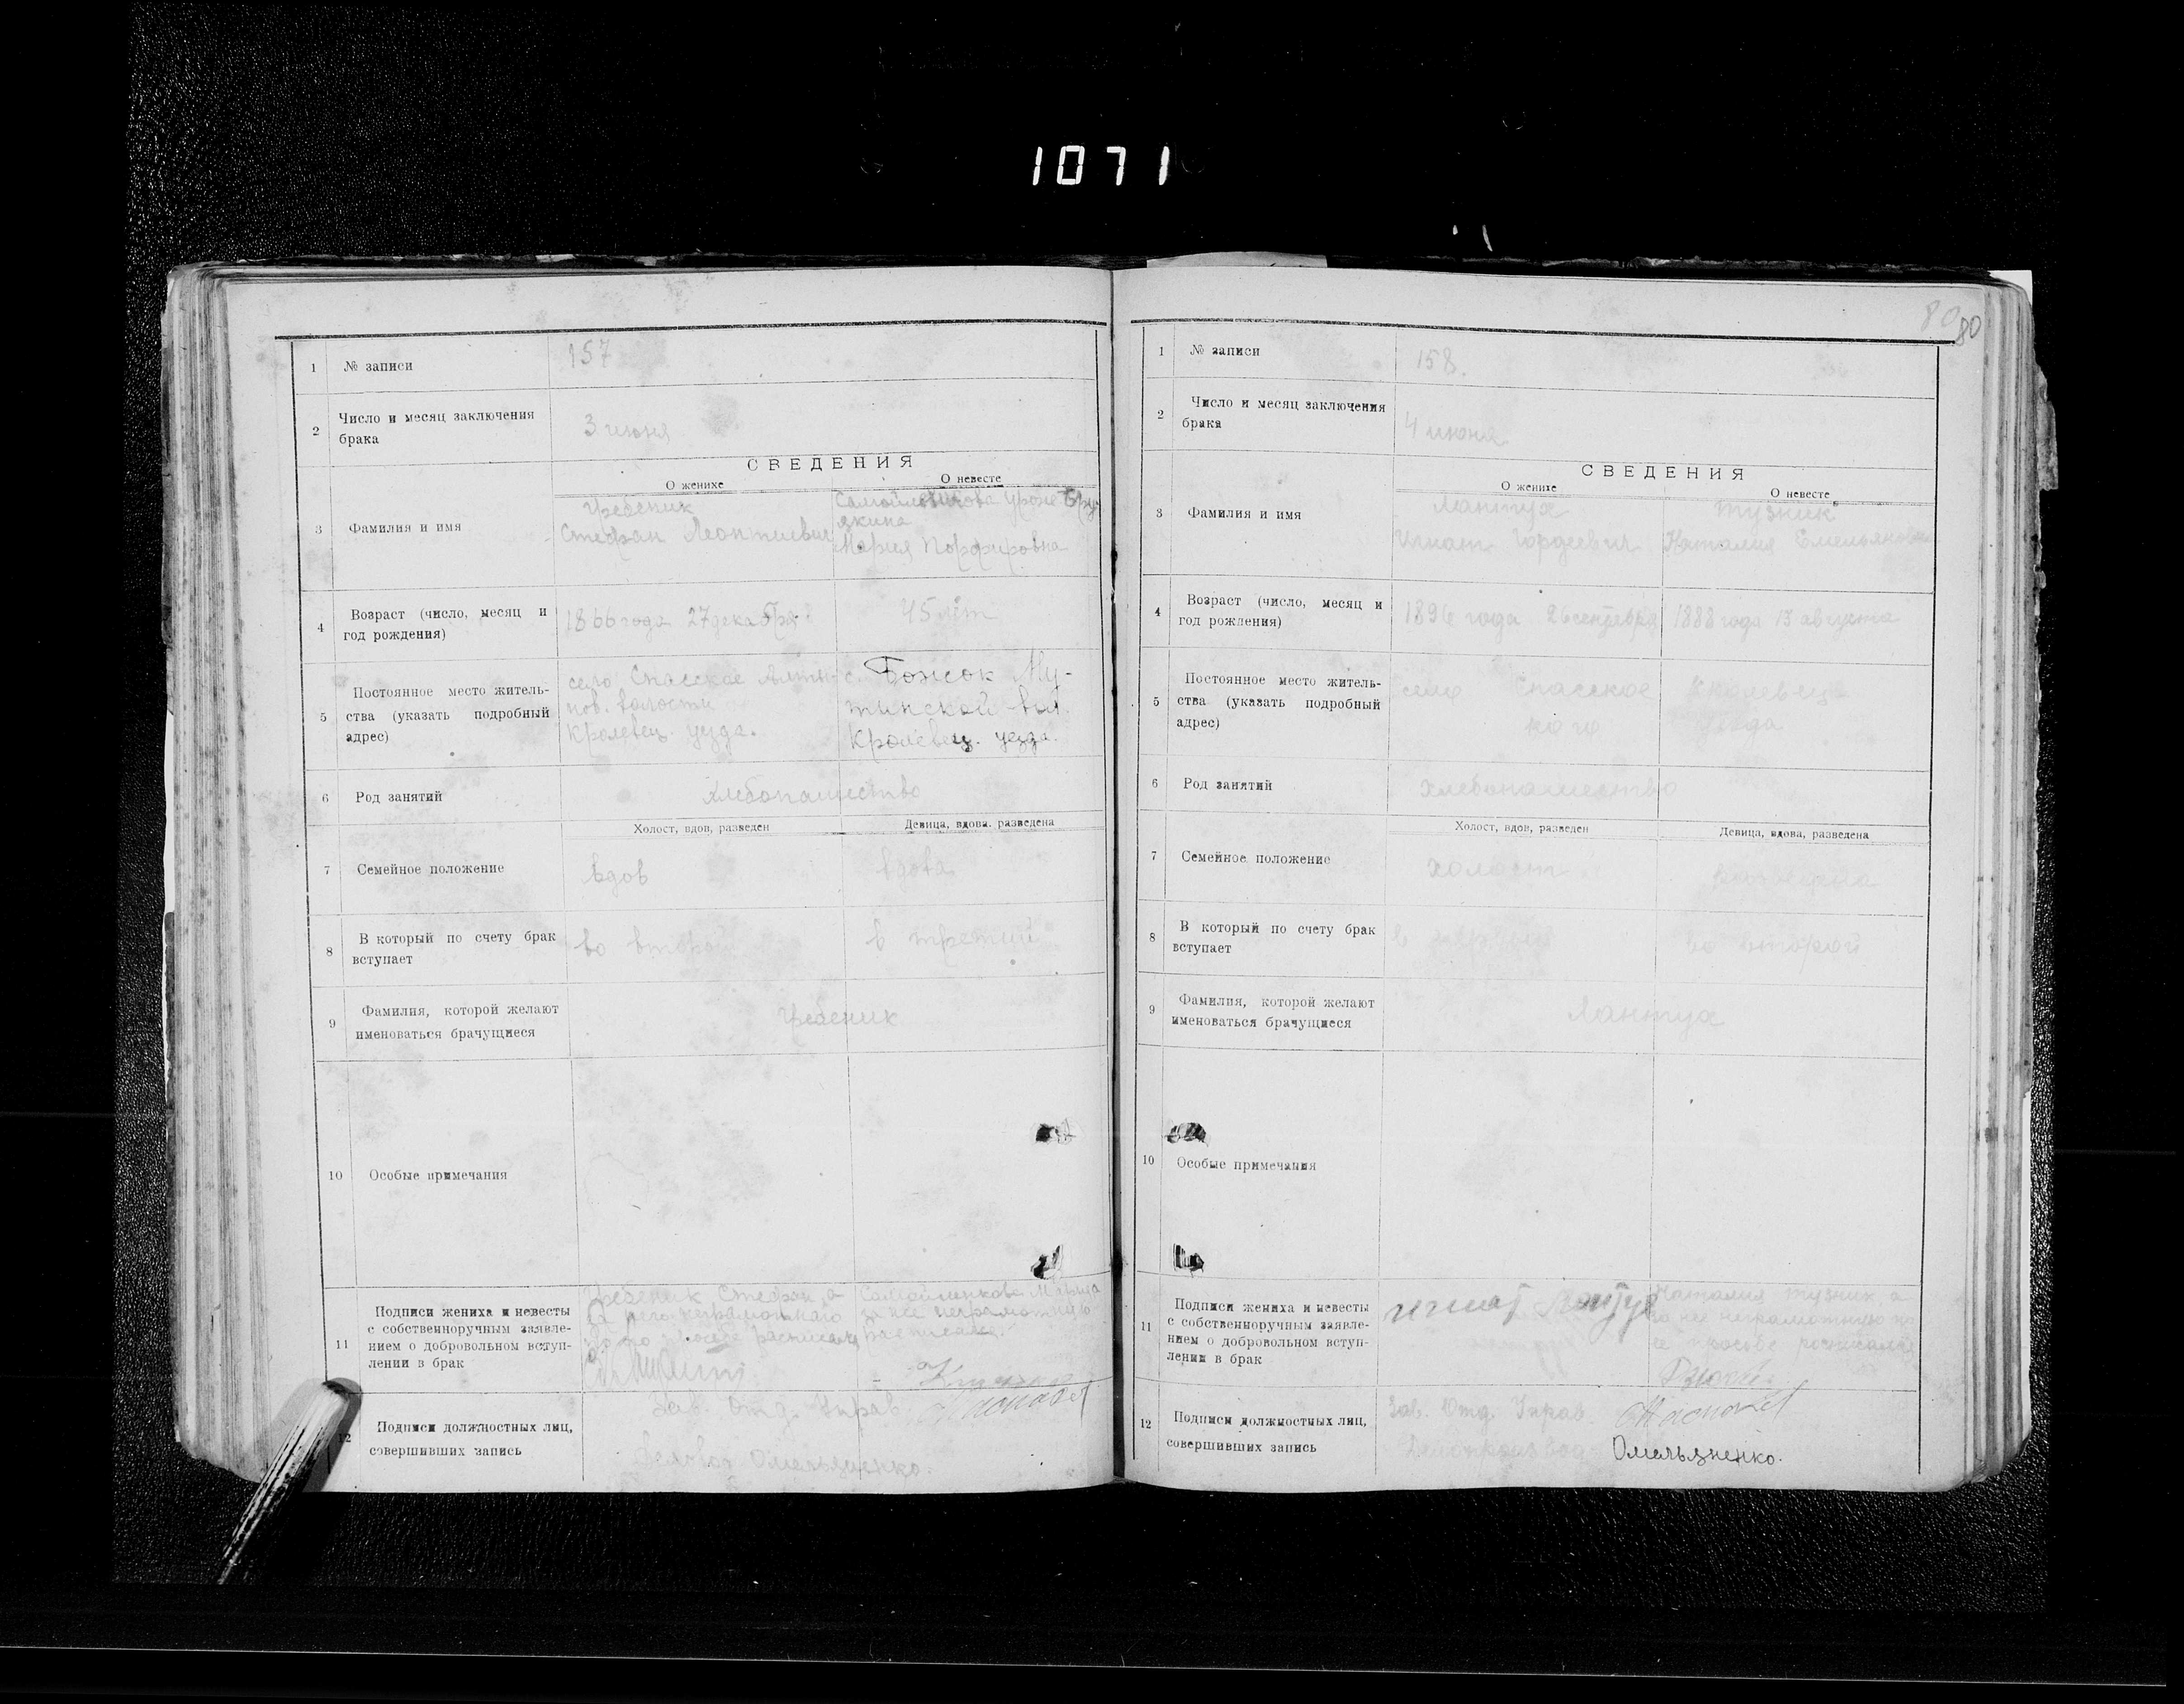 1071
1 № записи 157
2 Число и месяц заключения
брака 3 июня
СВЕДЕНИЯ
О женихе О невесте
3 Фамилия и имя
Гребеник
Стефан Леонтиевич
Самойленкова
Мария Порфировна
4 Возраст (число, месяц и
год рождения)
1866 года 27 декабря 45 лет
5 Постоянное место житель-
ства (указать подробный
адрес)
село Спасское Алты-
нов. волости
Кролевец. уезда.
с. Божок Му-
тинской вол.
Кролевец. уезда.
6 Род занятий хлебопашество
Холост, вдов, разведен Девица, вдова, разведена
7 Семейное положение вдов вдова
8 В который по счету брак
вступает во второй в третий
9 Фамилия, которой желают
именоваться брачущиеся Гребеник
10 Особые примечания
11 Подписи жениха и невесты
с собственноручным заявле-
нием о добровольном вступ-
лении в брак
Гребеник Стефан, а
за него неграмотного
по его просьбе расписался
Самойленкова Мария
за нее неграмотную
расписался
12 Подписи должностных лиц,
совершивших запись
Зав. Отд. Управ.
Омельяненко.
80
80
1 № записи 158.
2 Число и месяц заключения
брака 4 июня
СВЕДЕНИЯ
О женихе О невесте
3 Фамилия и имя
Лантух
Игнат Гордеевич
Тузник
Наталия Емельяновна
4 Возраст (число, месяц и
год рождения)
1896 года 26 сентября 1888 года 15 августа
5 Постоянное место житель-
ства (указать подробный
адрес)
село Спасское Кролевец-
кого уезда
6 Род занятий хлебопашество
Холост, вдов, разведен Девица, вдова, разведена
7 Семейное положение холост разведена
8 В который по счету брак
вступает в первый во второй
9 Фамилия, которой желают
именоваться брачущиеся Лантух
10 Особые примечания
11 Подписи жениха и невесты
с собственноручным заявле-
нием о добровольном вступ-
лении в брак
игнат Лантух
Наталия Тузник а
за нее неграмотную по
ее просьбе расписался
12 Подписи должностных лиц,
совершивших запись
Зав. Отд. Управ.
Делопроизвод Омельяненко.